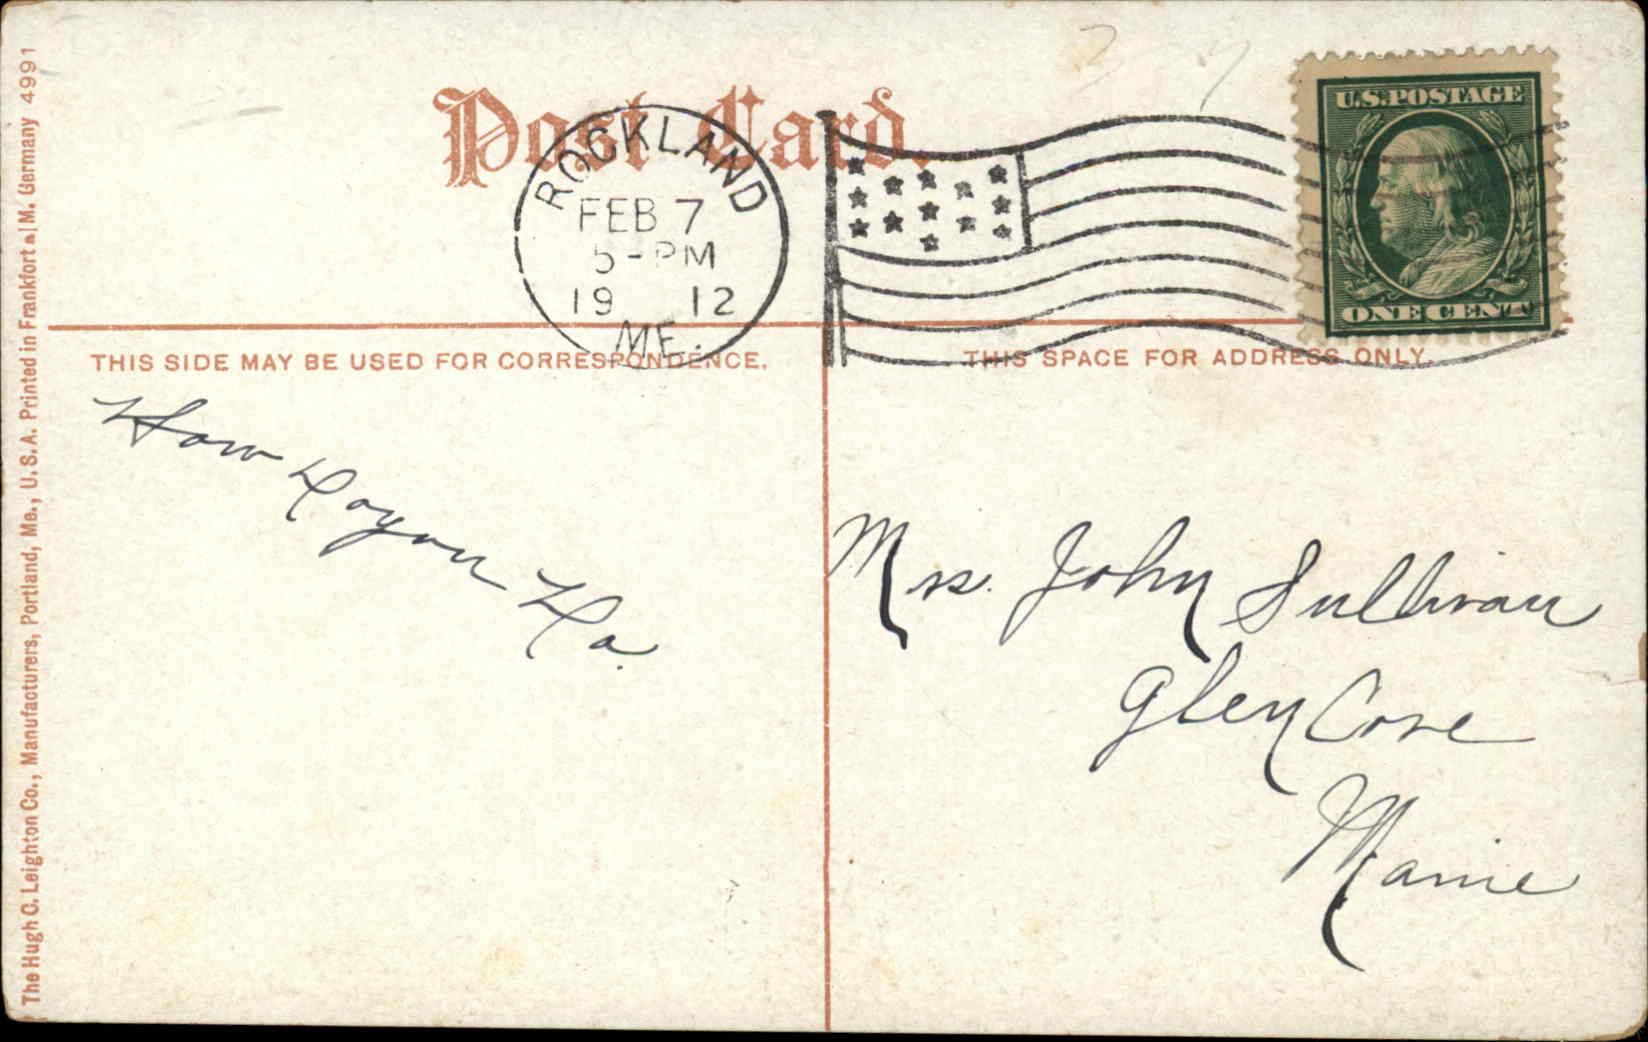 Post Card.
ROCKLAND
FEB 7
5-PM
19 12
ME.
U.S. POSTAGE
ONE CENT
THIS SIDE MAY BE USED FOR CORRESPONDENCE.
THIS SPACE FOR ADDRESS ONLY.
How
Mrs. John Sullivan
Glen Cove
Maine
The Hugh C. Leighton Co., Manufacturers, Portland, Me., U.S.A. Printed in Frankfort a|M. Germany 4991